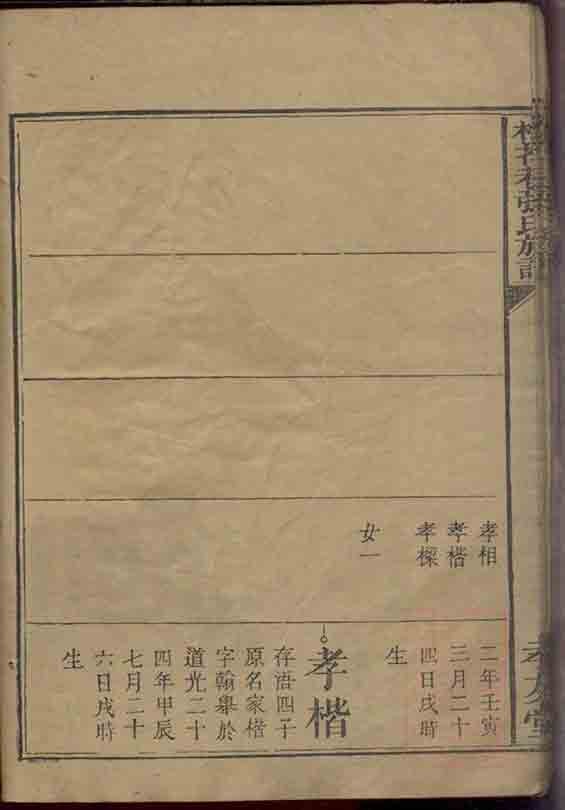 孝相
孝楷
孝樑
女一
二年壬寅
三月二十
四日戌時
生
孝楷
存浯四子
原名家楷
字翰舉於
道光二十
四年甲辰
七月二十
六日戌時
生
張氏族譜
孝友堂